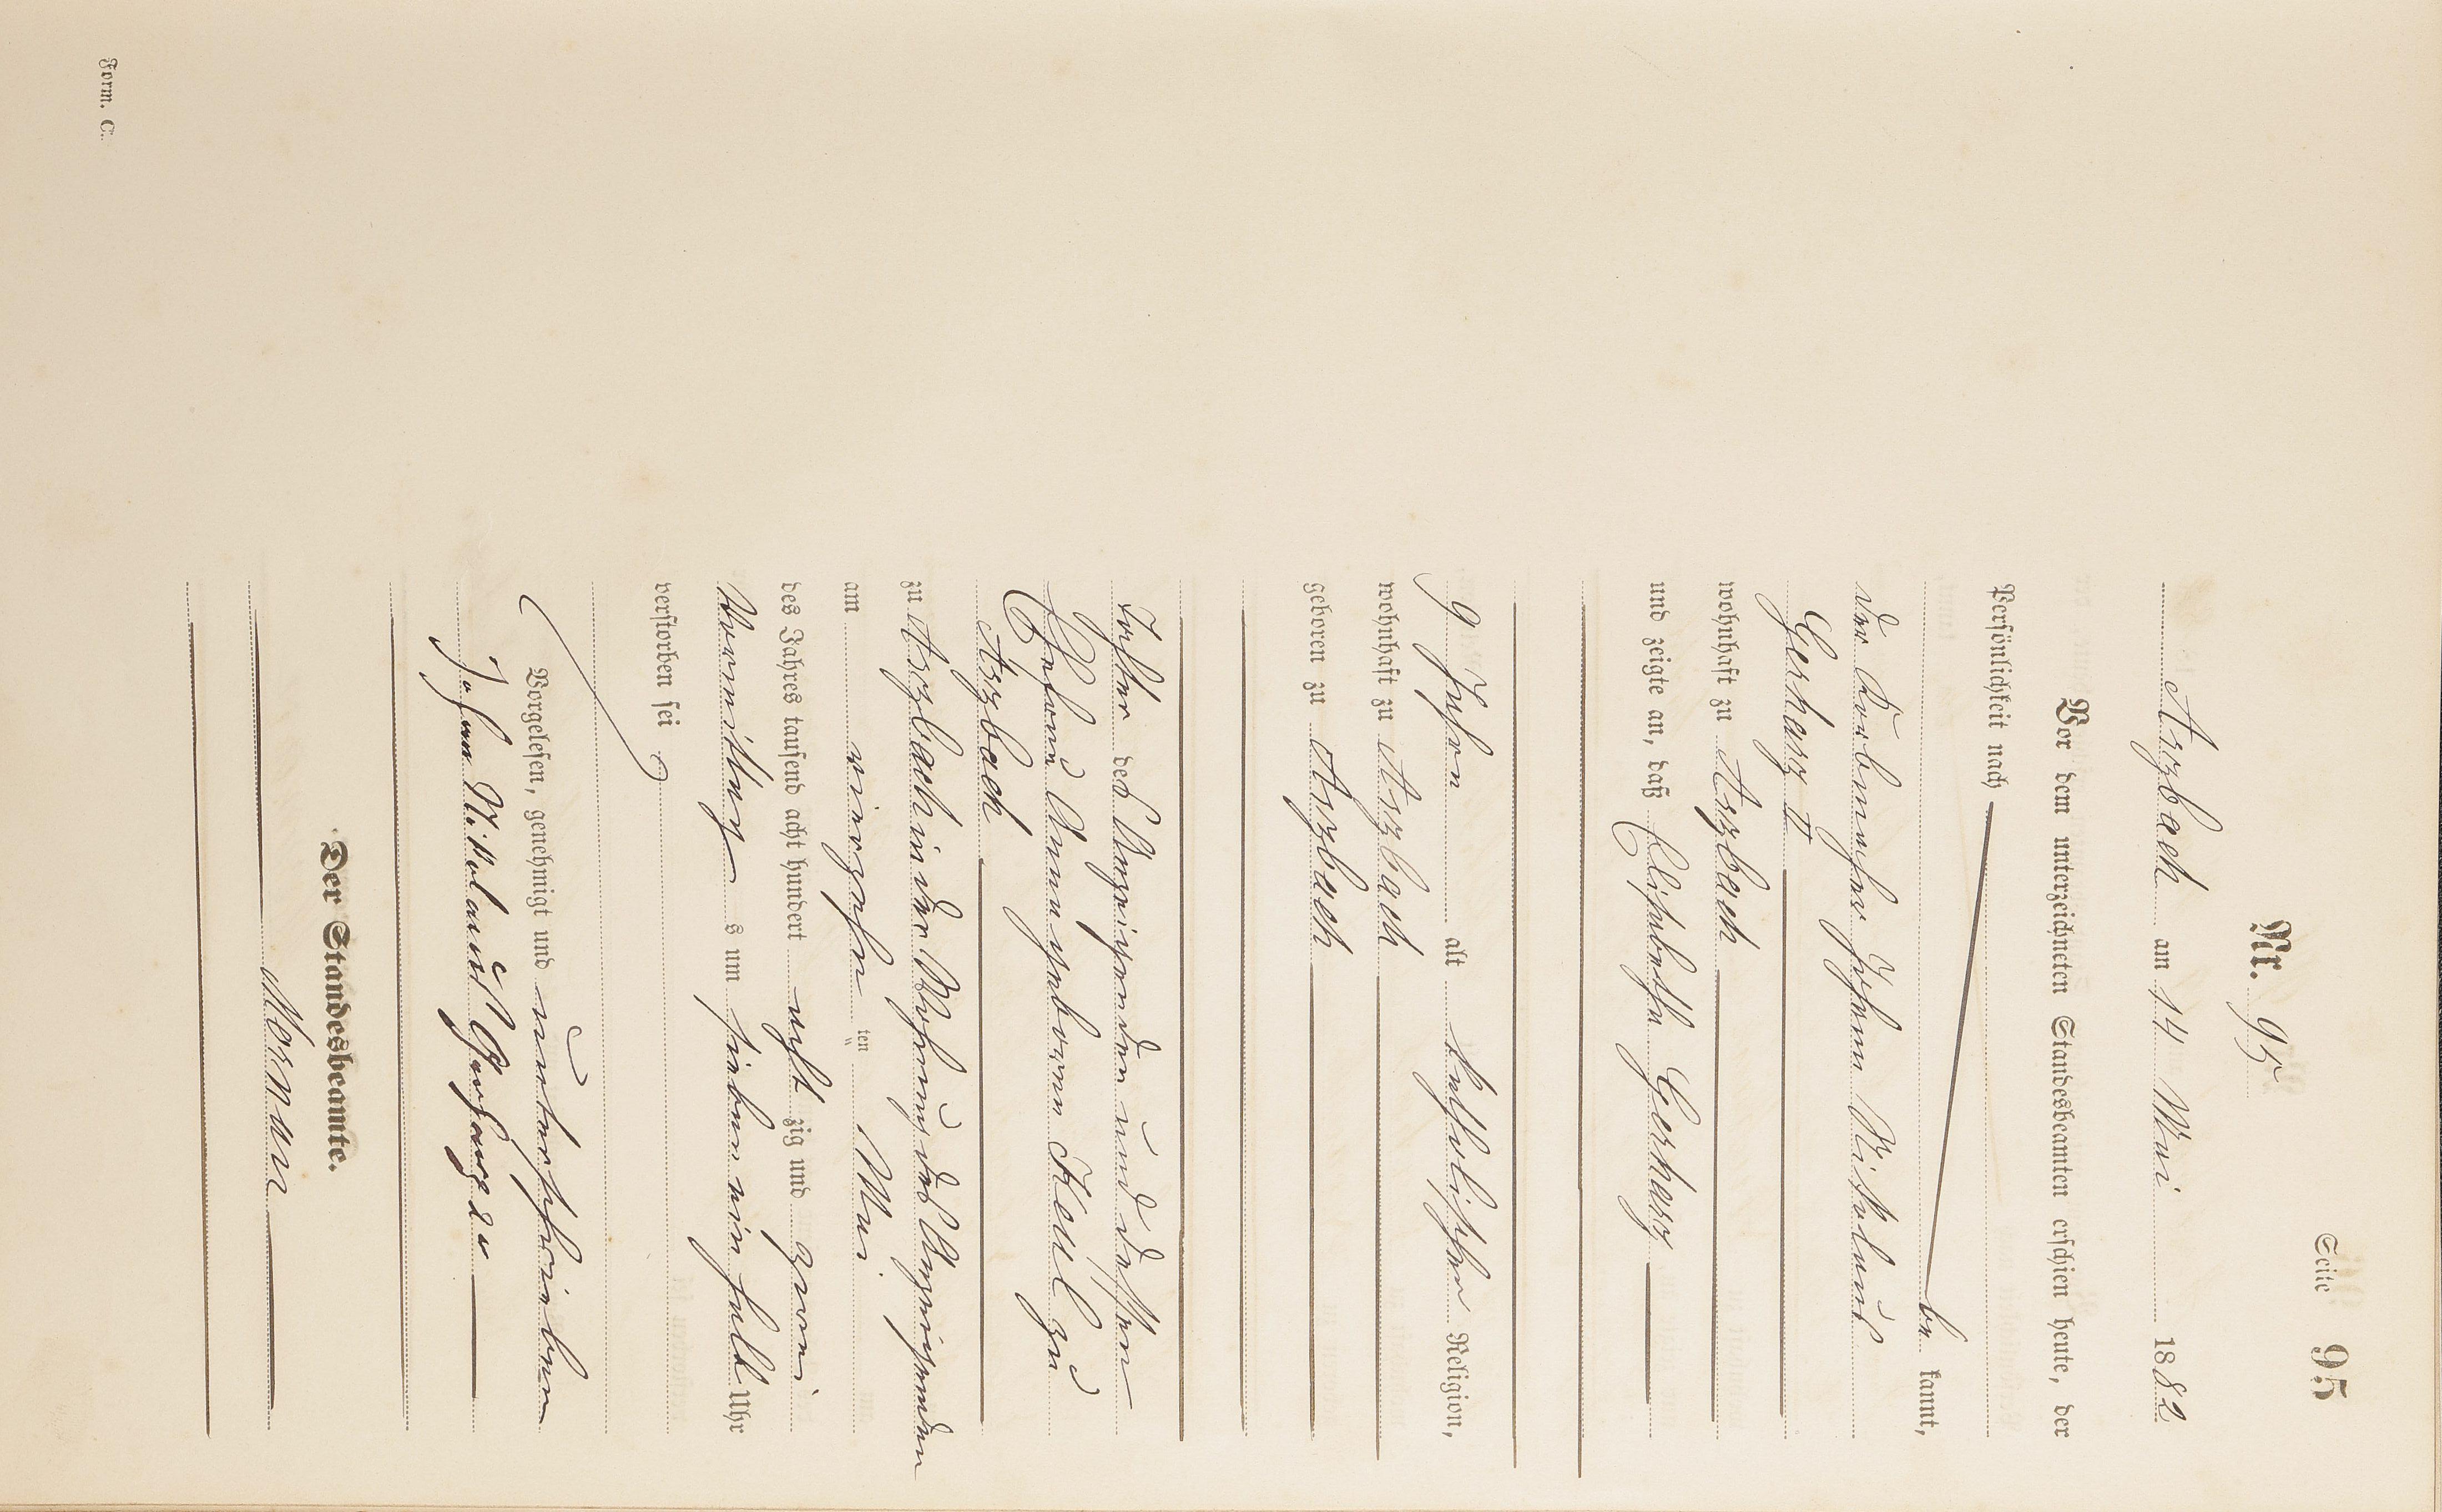 Seite 95
Nr. 95
Arzbach am 14 Mai 1882
Vor dem unterzeichneten Standesbeamten erschien heute, der
Persönlichkeit nach
be kannt,
der Johann Nikolaus
Gerharz II
wohnhaft zu Arzbach
und zeigte an, daß Elisabetha Gerharz
9 Jahren alt katholischer Religion,
wohnhaft zu Arzbach
geboren zu Arzbach
Tochter des Anzeigenden und dessen
Ehefrau Anna geborene Keul zu
Arzbach
zu Arzbach in der Wohnung des Anzeigenden
am vierzehn ten Mai
des Jahres tausend acht hundert acht zig und zwei
Vormittag s um sieben ein halb Uhr
verstorben sei
Vorgelesen, genehmigt und unterschrieben
Johann Nikolaus Gerharz 2r
Der Standesbeamte.
Form. C.